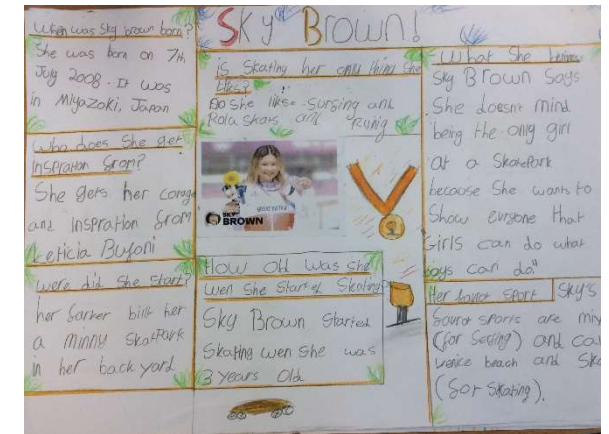 Sky Brown!
When was Sky brown born?
She was born on 7th
July 2008. It was
in Miyazoki, Japan
Who does She get
Inspration from?
She gets her corage
and Inspration from
Leticia Bufoni
were did She Start?
her farker bilt her
a minny SkatPark
in her back yard
is Skating her only thing She
likes?
No She likse Surfing and
Rola Skats and Runing
SKY
BROWN
How old was She
wen She Started Skating?
Sky Brown Started
Skating wen She was
3 years old
What She
Sky Brown Says
She doesnt mind
being the only girl
at a SkatePark
becose She wants to
Show evryone that
Girls can do what
boys can do."
Her favrot Sport
Sky's
favrot sports are
(for Serfing) and
venice beach and
(for Skating).